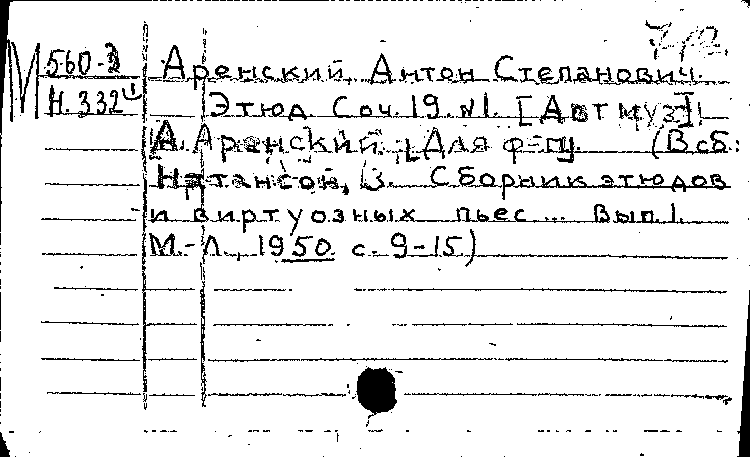 М 560-3 Аренский, Антон Степанович.
Н.332 Этюд. Соч. 19. №1. [Авт муз]:
А. Аренский. Для ф-п. (В сб.:
Натансон, В. Сборник этюдов
и виртуозных пьес... Вып. 1.
М.-Л., 1950. с. 9-15)